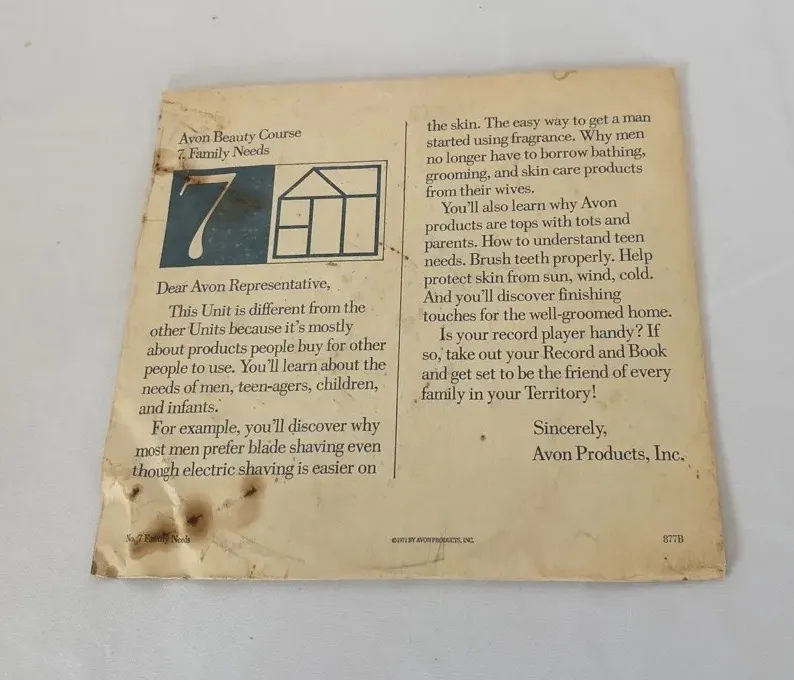 Avon Beauty Course
7. Family Needs
7
Dear Avon Representative,
This Unit is different from the
other Units because it's mostly
about products people buy for other
people to use. You'll learn about the
needs of men, teen-agers, children,
and infants.
For example, you'll discover why
most men prefer blade shaving even
though electric shaving is easier on
the skin. The easy way to get a man
started using fragrance. Why men
no longer have to borrow bathing,
grooming, and skin care products
from their wives.
You'll also learn why Avon
products are tops with tots and
parents. How to understand teen
needs. Brush teeth properly. Help
protect skin from sun, wind, cold.
And you'll discover finishing
touches for the well-groomed home.
Is your record player handy? If
so, take out your Record and Book
and get set to be the friend of every
family in your Territory!
Sincerely,
Avon Products, Inc.
No. 7 Family Needs
©1971 BY AVON PRODUCTS, INC.
877B